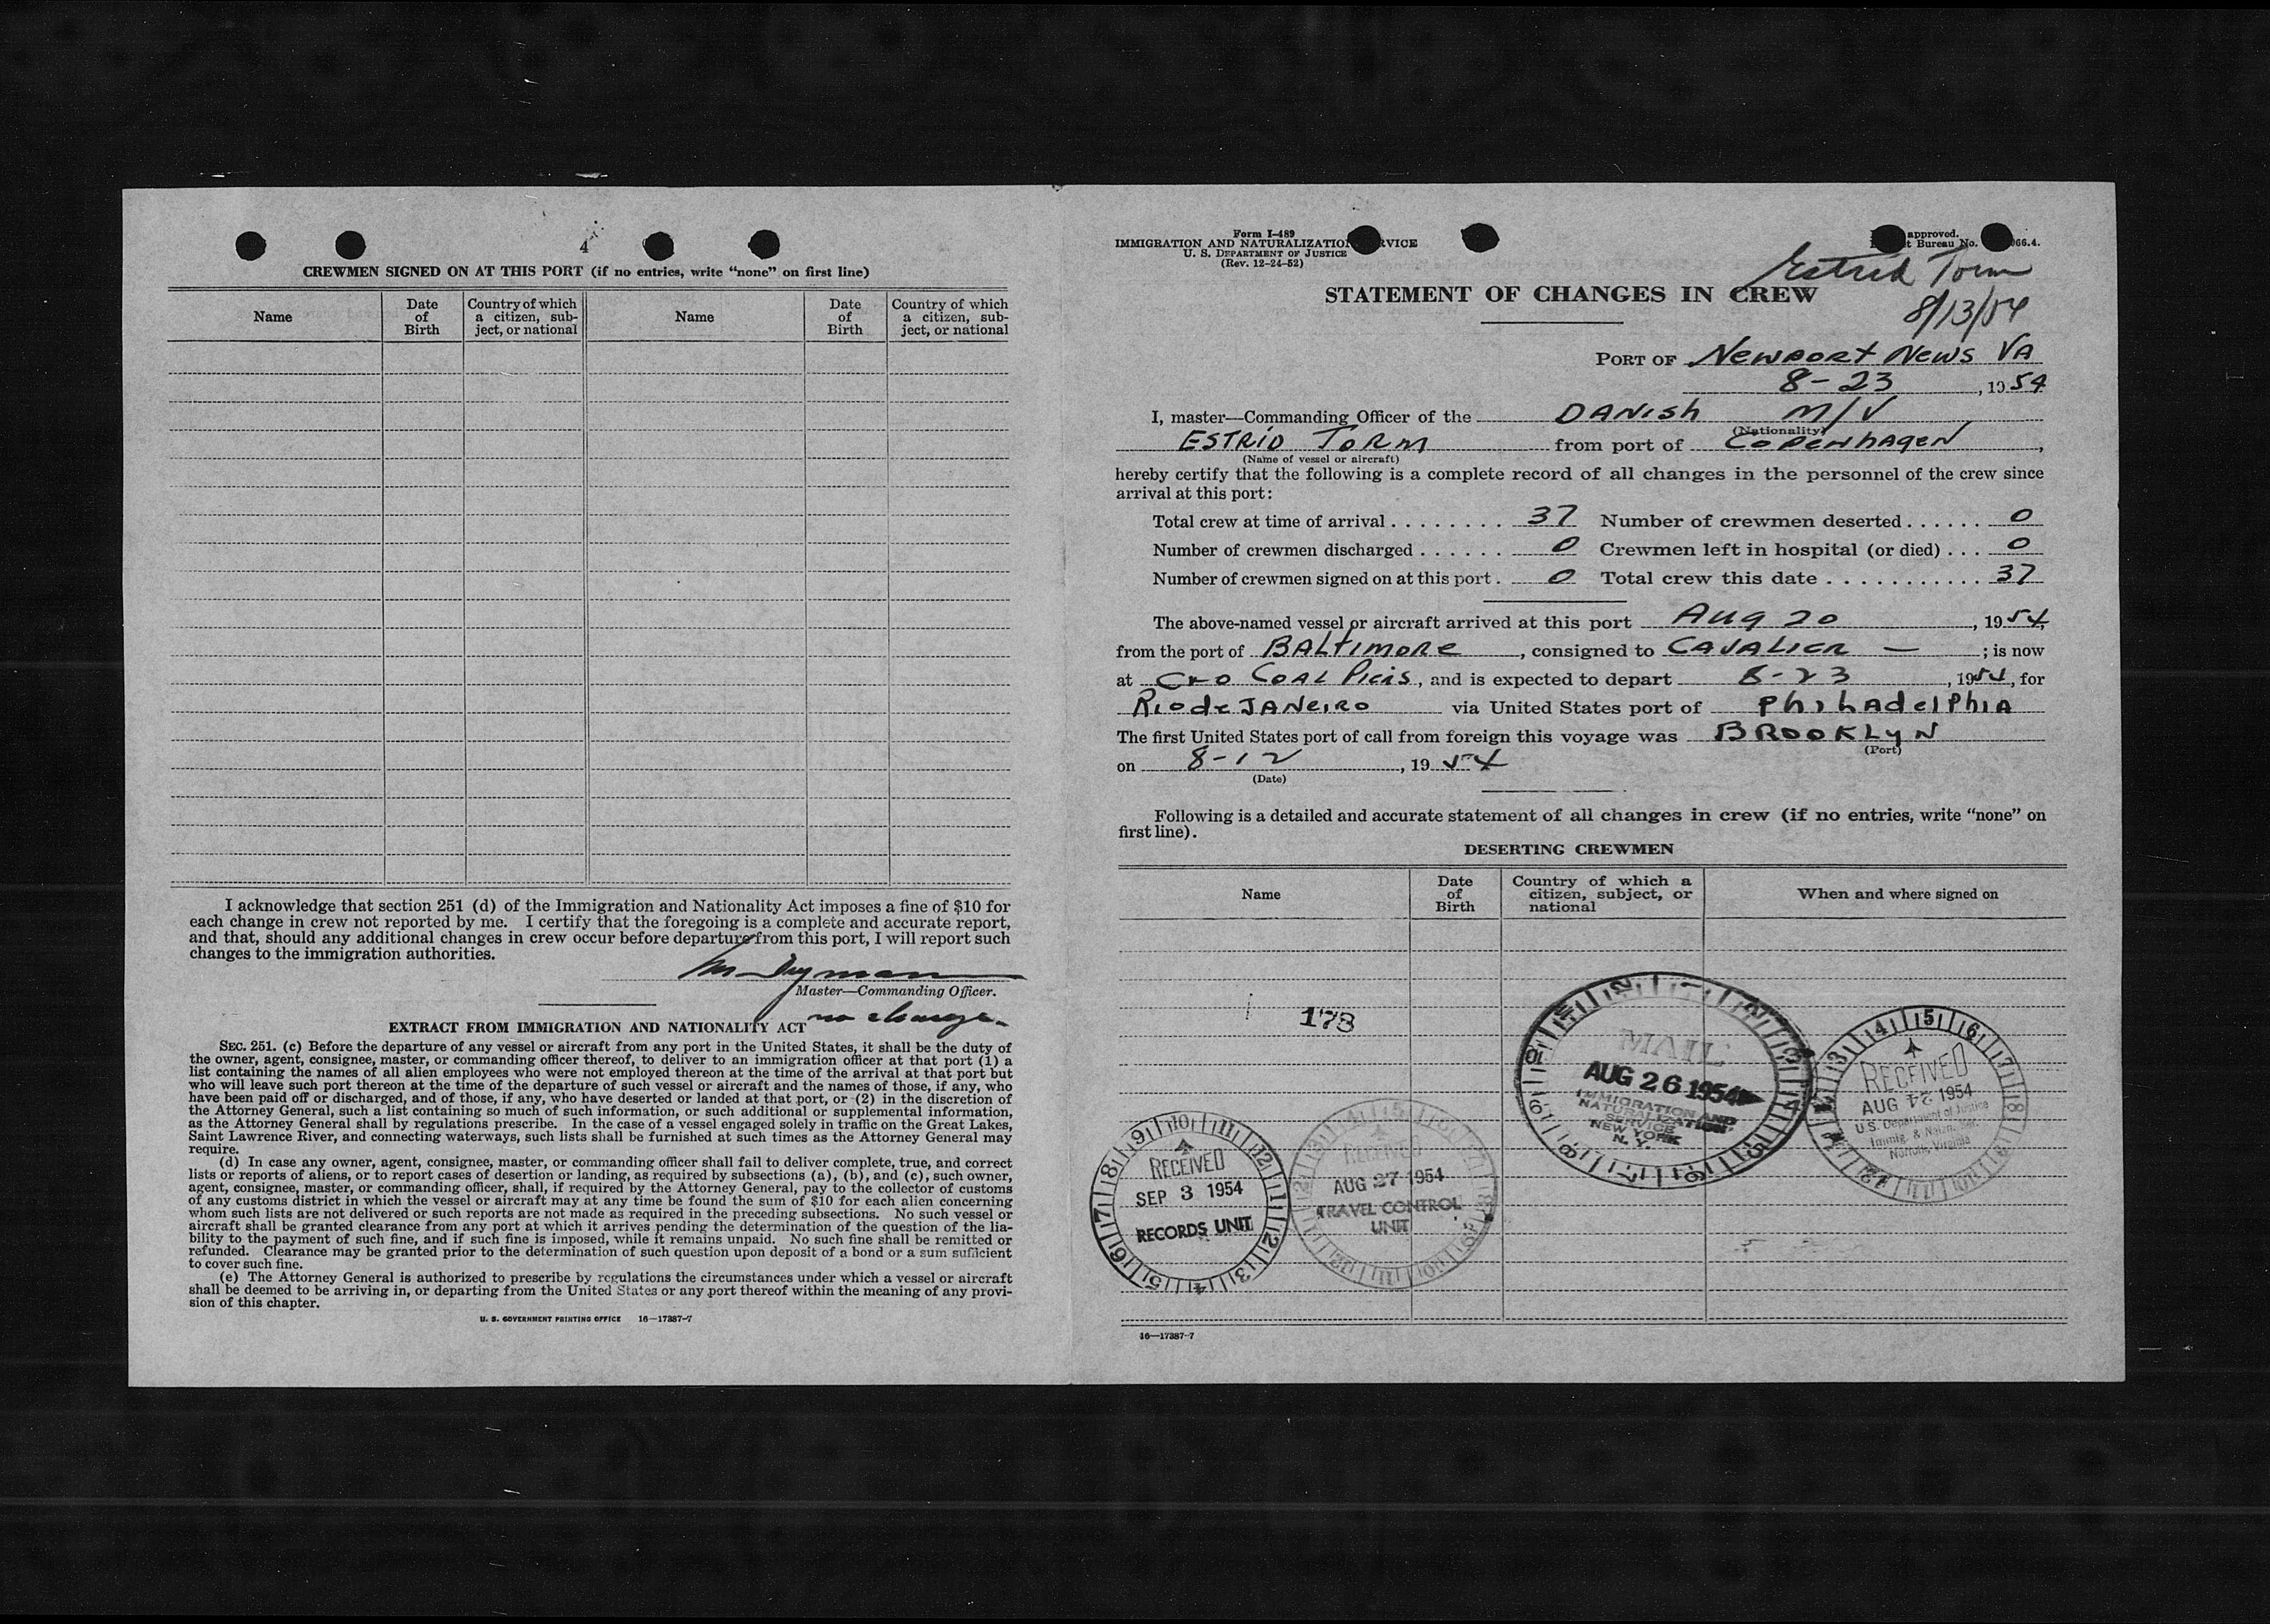 4
CREWMEN SIGNED ON AT THIS PORT (if no entries, write “none” on first line)
Name
Date of Birth
Country of which a citizen, subject, or national
Name
Date of Birth
Country of which a citizen, subject, or national
I acknowledge that section 251 (d) of the Immigration and Nationality Act imposes a fine of $10 for
each change in crew not reported by me. I certify that the foregoing is a complete and accurate report,
and that, should any additional changes in crew occur before departure from this port, I will report such
changes to the immigration authorities.
Master—Commanding Officer.
no change
EXTRACT FROM IMMIGRATION AND NATIONALITY ACT
SEC. 251. (c) Before the departure of any vessel or aircraft from any port in the United States, it shall be the duty of
the owner, agent, consignee, master, or commanding officer thereof, to deliver to an immigration officer at that port (1) a
list containing the names of all alien employees who were not employed thereon at the time of the arrival at that port but
who will leave such port thereon at the time of the departure of such vessel or aircraft and the names of those, if any, who
have been paid off or discharged, and of those, if any, who have deserted or landed at that port, or (2) in the discretion of
the Attorney General, such a list containing so much of such information, or such additional or supplemental information,
as the Attorney General shall by regulations prescribe. In the case of a vessel engaged solely in traffic on the Great Lakes,
Saint Lawrence River, and connecting waterways, such lists shall be furnished at such times as the Attorney General may
require.
(d) In case any owner, agent, consignee, master, or commanding officer shall fail to deliver complete, true, and correct
lists or reports of aliens, or to report cases of desertion or landing, as required by subsections (a), (b), and (c), such owner,
agent, consignee, master, or commanding officer, shall, if required by the Attorney General, pay to the collector of customs
of any customs district in which the vessel or aircraft may at any time be found the sum of $10 for each alien concerning
whom such lists are not delivered or such reports are not made as required in the preceding subsections. No such vessel or
aircraft shall be granted clearance from any port at which it arrives pending the determination of the question of the lia-
bility to the payment of such fine, and if such fine is imposed, while it remains unpaid. No such fine shall be remitted or
refunded. Clearance may be granted prior to the determination of such question upon deposit of a bond or a sum sufficient
to cover such fine.
(e) The Attorney General is authorized to prescribe by regulations the circumstances under which a vessel or aircraft
shall be deemed to be arriving in, or departing from the United States or any port thereof within the meaning of any provi-
sion of this chapter.
U. S. GOVERNMENT PRINTING OFFICE 16—17387-7
Form I-489
IMMIGRATION AND NATURALIZATION RVICE
U. S. DEPARTMENT OF JUSTICE
(Rev. 12-24-52)
approved.
t Bureau No. 66.4.
Estrid Torm
8/13/54
STATEMENT OF CHANGES IN CREW
PORT OF Newport News VA
8-23, 1954
I, master—Commanding Officer of the DANISH M/V
(Nationality)
ESTRID TORM from port of COPENHAGEN,
(Name of vessel or aircraft)
hereby certify that the following is a complete record of all changes in the personnel of the crew since
arrival at this port:
Total crew at time of arrival . . . . . . . . 37 Number of crewmen deserted . . . . . . 0
Number of crewmen discharged . . . . . . 0 Crewmen left in hospital (or died) . . . 0
Number of crewmen signed on at this port . 0 Total crew this date . . . . . . . . . . . 37
The above-named vessel or aircraft arrived at this port Aug 20, 1954,
from the port of BALTIMORE, consigned to CAVALIER —; is now
at C+O COAL Piers, and is expected to depart 8-23, 1954, for
Rio de JANEIRO via United States port of PhILAdelPhIA
The first United States port of call from foreign this voyage was BROOKLYN
(Port)
on 8-12, 1954
(Date)
Following is a detailed and accurate statement of all changes in crew (if no entries, write “none” on
first line).
DESERTING CREWMEN
Name
Date of Birth
Country of which a citizen, subject, or national
When and where signed on
178
MAIL
AUG 26 1954
IMMIGRATION AND
NATURALIZATION
SERVICE
NEW YORK
N. Y.
RECEIVED
AUG 1954
U.S. Department of Justice
Immig. & Natzn. Ser.
Norfolk, Virginia
RECEIVED
SEP 3 1954
RECORDS UNIT
RECEIVED
AUG 27 1954
TRAVEL CONTROL
UNIT
16—17387-7